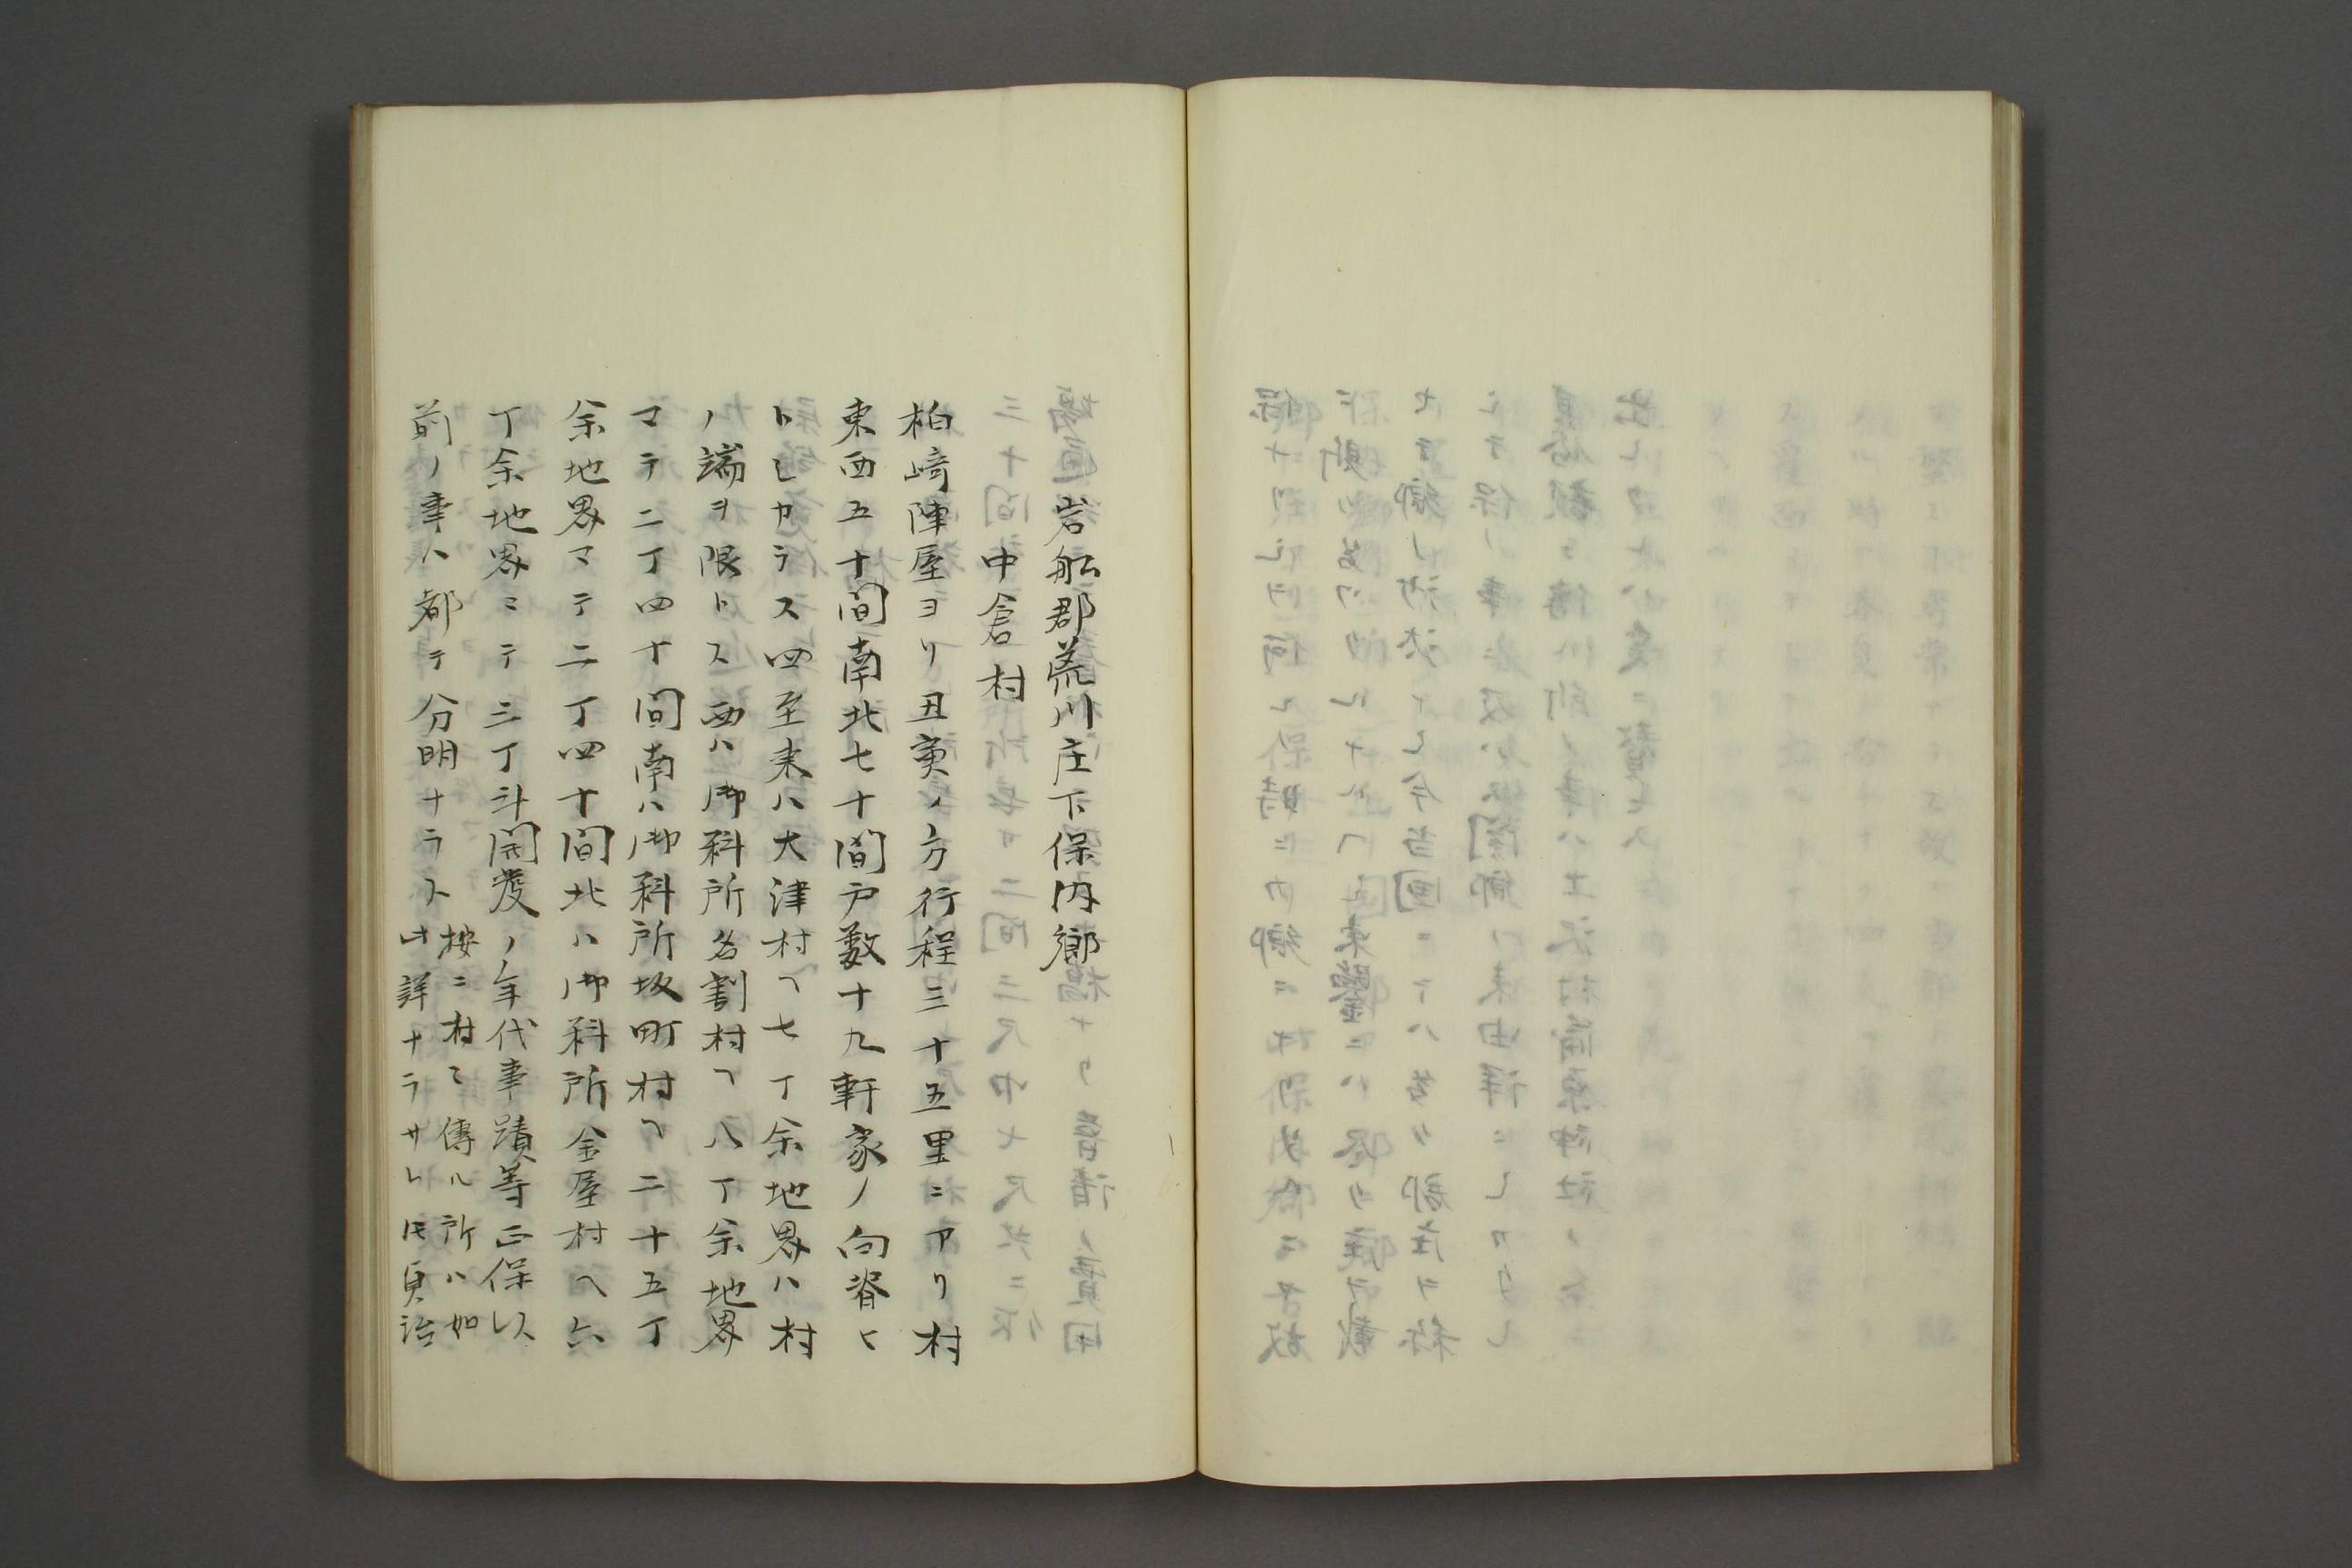 岩船郡荒川庄下保内郷
中倉村
柏崎陣屋ヨリ丑寅ノ方行程三十五里ニアリ村
東西五十間南北七十間戸数十九軒家ノ向脊ヒ
トシカラス四至東ハ大津村ヘ七丁余地界ハ村
ノ端ヲ限トス西ハ御料所名割村ヘ八丁余地界
マテ二丁四十間南ハ御料所坂町村ヘ二十五丁
余地界マテ二丁四十間北ハ御料所金屋村ヘ六
丁余地界マテ三丁斗開発ノ年代事蹟等正保以
前ノ事ハ都テ分明ナラス
按ニ村ニ傳ル所ハ如
此詳ナラサレ𪜈貞治